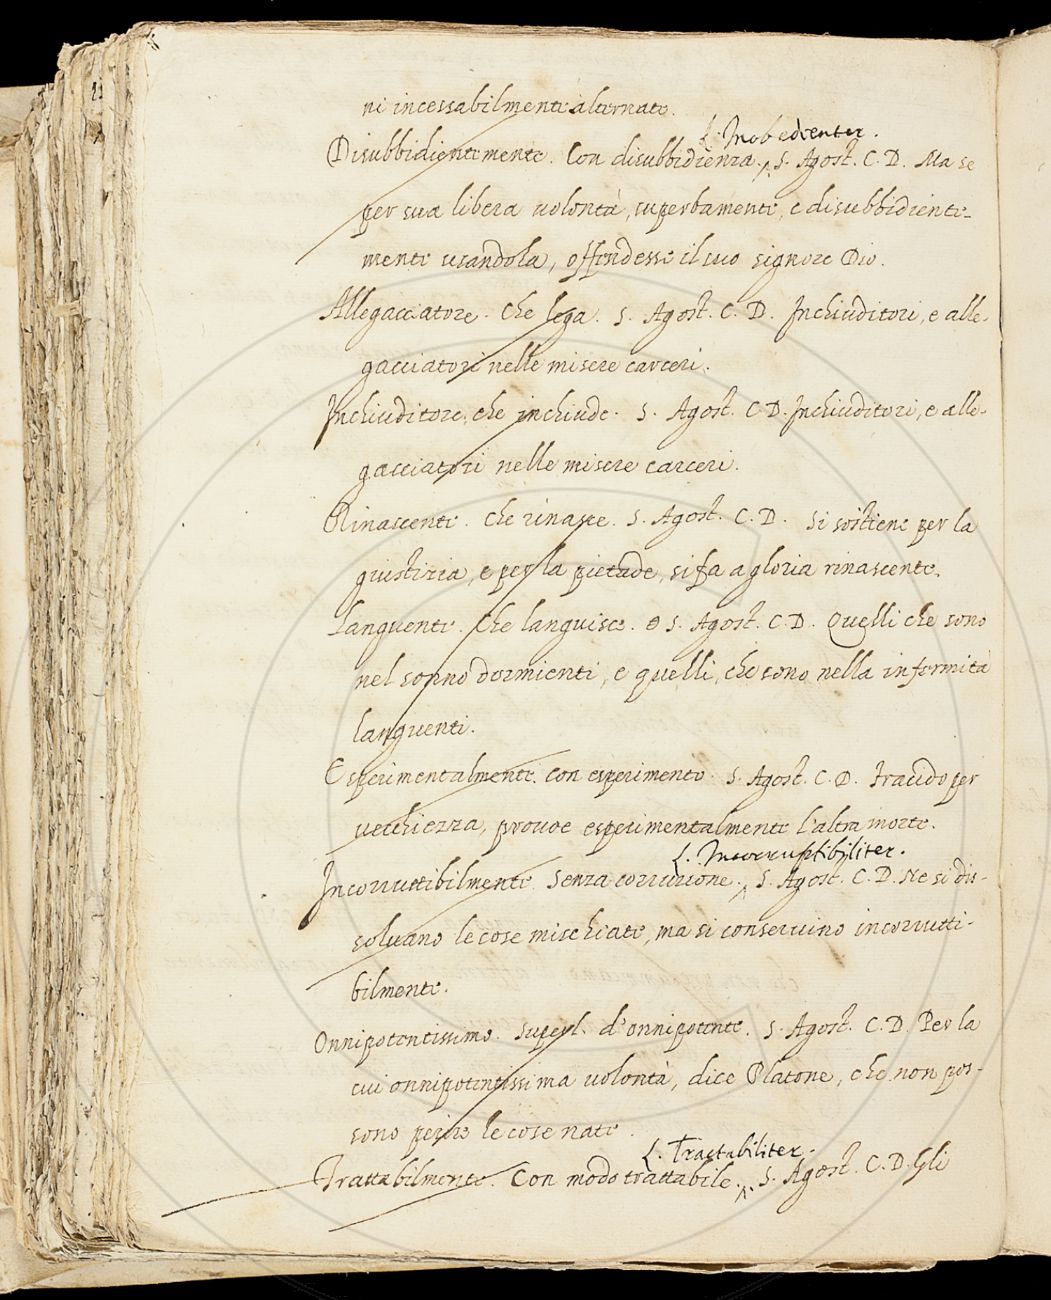 ni incessabilmente alternate.
L. Inobedienter.
Disubbidientemente. Con disubbidienza. ^ S. Agost. C. D. Ma se
per sua libera volontà, superbamente, e disubbidiente-
mente usandola, offendesse il suo signore Dio.
Allegacciatore. Che lega. S. Agost. C. D. Inchiuditori, e alle-
gacciatori nelle misere carceri.
Inchiuditore, che inchiude. S. Agost. C. D. Inchiuditori, e alle-
gacciatori nelle misere carceri.
Rinascente. Che rinasce. S. Agost. C. D. Si sostiene per la
giustizia, e per la pietade, si fa a gloria rinascente.
Languente. Che languisce. S. Agost. C. D. Quelli che sono
nel sonno dormienti, e quelli, che sono nella infermità
languenti.
Esperimentalmente. con esperimento. S. Agost. C. D. Fracido per
vecchiezza, provoe esperimentalmente l'altra morte.
L. Incorruptibiliter.
Incorruttibilmente. Senza corruzione. ^ S. Agost. C. D. Ne si dis-
solvano le cose mischiate, ma si conservino incorrutti-
bilmente.
Onnipotentissimo. Superl. d'onnipotente. S. Agost. C. D. Per la
cui onnipotentissima volontà, dice Platone, che non pos-
sono perire le cose nate.
L. Tractabiliter.
Trattabilmente. Con modo trattabile. ^ S. Agost. C. D. Gli